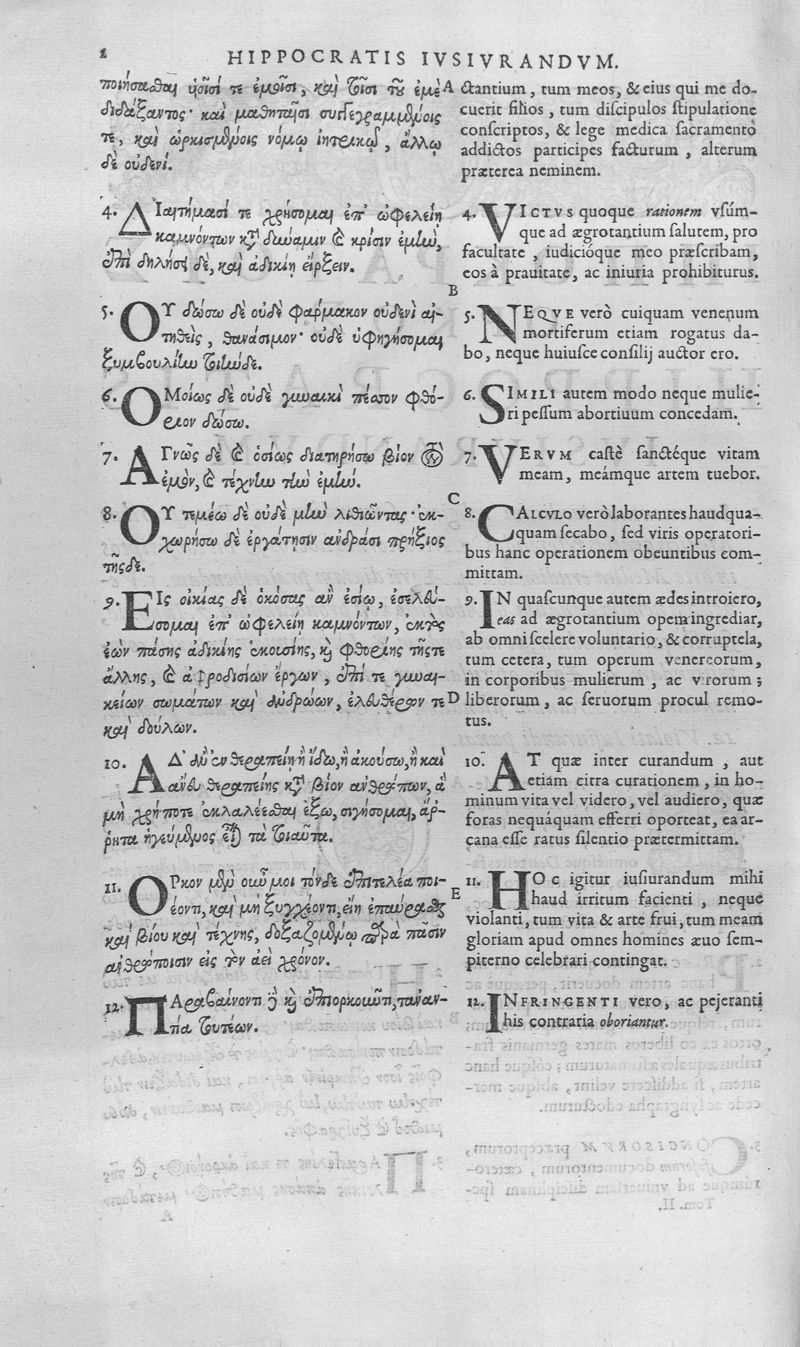 2 HIPPOCRATIS IVSIVRANDVM.
ποιήσασθαι υἱοῖσί τε ἐμοῖσι, καὶ τοῖσι τοῦ ἐμὲ
διδάξαντος· καὶ μαθηταῖσι συγγεγραμμένοις
τε, καὶ ὡρκισμένοις νόμῳ ἰητρικῷ, ἄλλῳ
δὲ οὐδενί.
4. ΔΙαιτήμασί τε χρήσομαι ἐπ' ὠφελείῃ
καμνόντων κατὰ δύναμιν καὶ κρίσιν ἐμὴν,
ἐπὶ δηλήσει δὲ, καὶ ἀδικίῃ εἴρξειν.
5. ΟΥ δώσω δὲ οὐδὲ φάρμακον οὐδενὶ αἰ-
τηθεὶς, θανάσιμον· οὐδὲ ὑφηγήσομαι
ξυμβουλίην τοιήνδε.
6. ΟΜοίως δὲ οὐδὲ γυναικὶ πέσσον φθό-
ριον δώσω.
7. ΑΓνῶς δὲ καὶ ὁσίως διατηρήσω βίον τὸν
ἐμὸν, καὶ τέχνην τὴν ἐμήν.
8. ΟΥ τεμέω δὲ οὐδὲ μὴν λιθιῶντας· ἐκ-
χωρήσω δὲ ἐργάτῃσιν ἀνδράσι πρήξιος
τῆςδε.
9. ΕΙς οἰκίας δὲ ὁκόσας ἂν ἐσίω, ἐσελεύ-
σομαι ἐπ' ὠφελείῃ καμνόντων, ἐκτὸς
ἐὼν πάσης ἀδικίης ἑκουσίης, καὶ φθορίης τῆςτε
ἄλλης, καὶ ἀφροδισίων ἔργων, ἐπί τε γυναι-
κείων σωμάτων καὶ ἀνδρώων, ἐλευθέρων τε
καὶ δούλων.
10. Α Δ' ἂν ἐν θεραπείῃ ἢ ἴδω, ἢ ἀκούσω, ἢ καὶ
ἄνευ θεραπείης κατὰ βίον ἀνθρώπων, ἃ
μὴ χρήποτε ἐκλαλέεσθαι ἔξω, σιγήσομαι, ἄρ-
ρητα ἡγεύμενος εἶναι τὰ τοιαῦτα.
11. ΟΡκον μὲν οὖν μοι τόνδε ἐπιτελέα ποι-
έοντι, καὶ μὴ ξυγχέοντι, εἴη ἐπαύρασθαι
καὶ βίου καὶ τέχνης, δοξαζομένῳ παρὰ πᾶσιν
ἀνθρώποισιν εἰς τὸν ἀεὶ χρόνον.
12. ΠΑραβαίνοντι δὲ καὶ ἐπιορκοῦντι, τἀναν-
τία τουτέων.
A
B
C
D
E
ctantium, tum meos, & eius qui me do-
cuerit filios, tum diſcipulos ſtipulatione
conſcriptos, & lege medica ſacramento
addictos participes facturum, alterum
præterea neminem.
4. VICTVS quoque rationem vſúm-
que ad ægrotantium ſalutem, pro
facultate, iudicióque meo præſcribam,
eos à prauitate, ac iniuria prohibiturus.
5. NEQVE verò cuiquam venenum
mortiferum etiam rogatus da-
bo, neque huiuſce conſilij auctor ero.
6. SIMILI autem modo neque mulie-
ri peſſum abortiuum concedam.
7. VERVM caſtè ſanctéque vitam
meam, meámque artem tuebor.
8. CALCVLO verò laborantes haudqua-
quam ſecabo, ſed viris operatori-
bus hanc operationem obeuntibus com-
mittam.
9. IN quaſcunque autem ædes introiero,
eas ad ægrotantium opem ingrediar,
ab omni ſcelere voluntario, & corruptela,
tum cetera, tum operum venereorum,
in corporibus mulierum, ac virorum;
liberorum, ac ſeruorum procul remo-
tus.
10. AT quæ inter curandum, aut
etiám citra curationem, in ho-
minum vita vel videro, vel audiero, quæ
foras nequáquam efferri oporteat, ea ar-
cana eſſe ratus ſilentio prætermittam.
11. HOC igitur iuſiurandum mihi
haud irritum facienti, neque
violanti, tum vita & arte frui, tum meam
gloriam apud omnes homines æuo ſem-
piterno celebrari contingat.
12. INFRINGENTI vero, ac pejeranti
his contraria oboriantur.